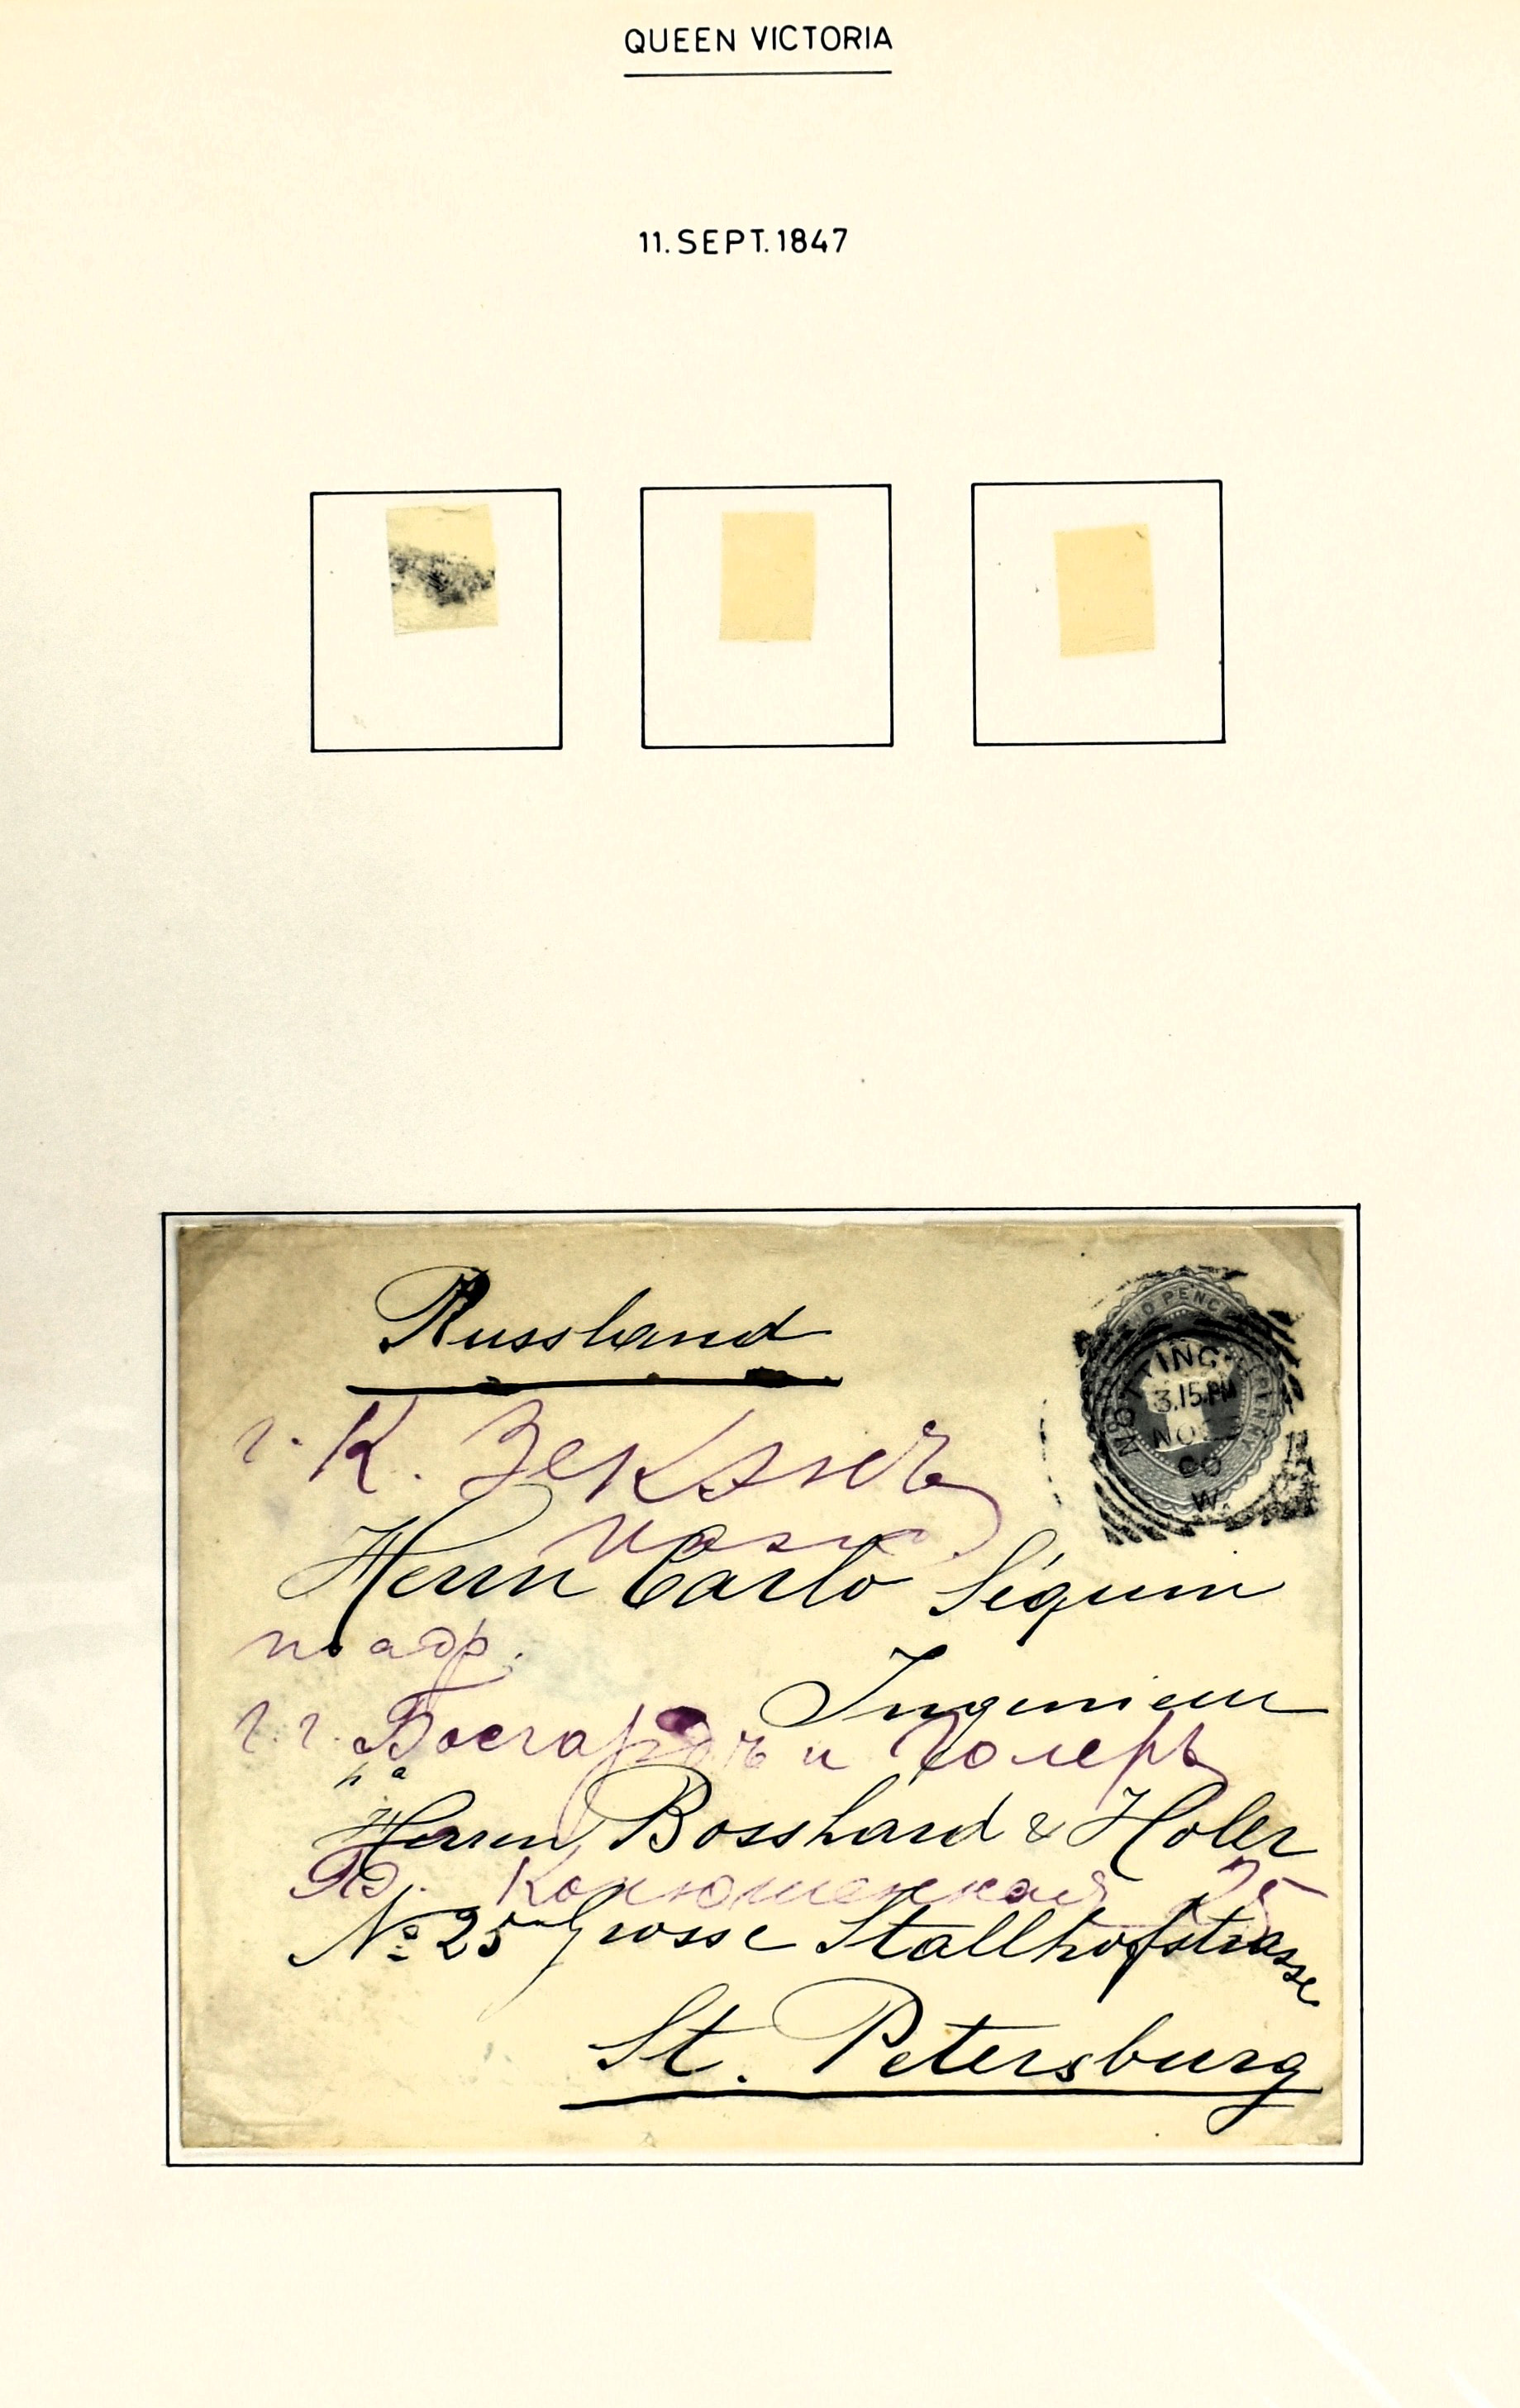 QUEEN VICTORIA
11. SEPT. 1847
Russland
PENCE
NOTTING
3.15.PM
NO
90
W.
г. К.
Herrn Carlo Séquin
по адр.
Ingenieur
г.г. Босгардъ и Голеръ
pa
Herren Bosshard & Holer
Бо. Конюшенная 25
No 25 Grosse Stallhofstrasse
St. Petersburg